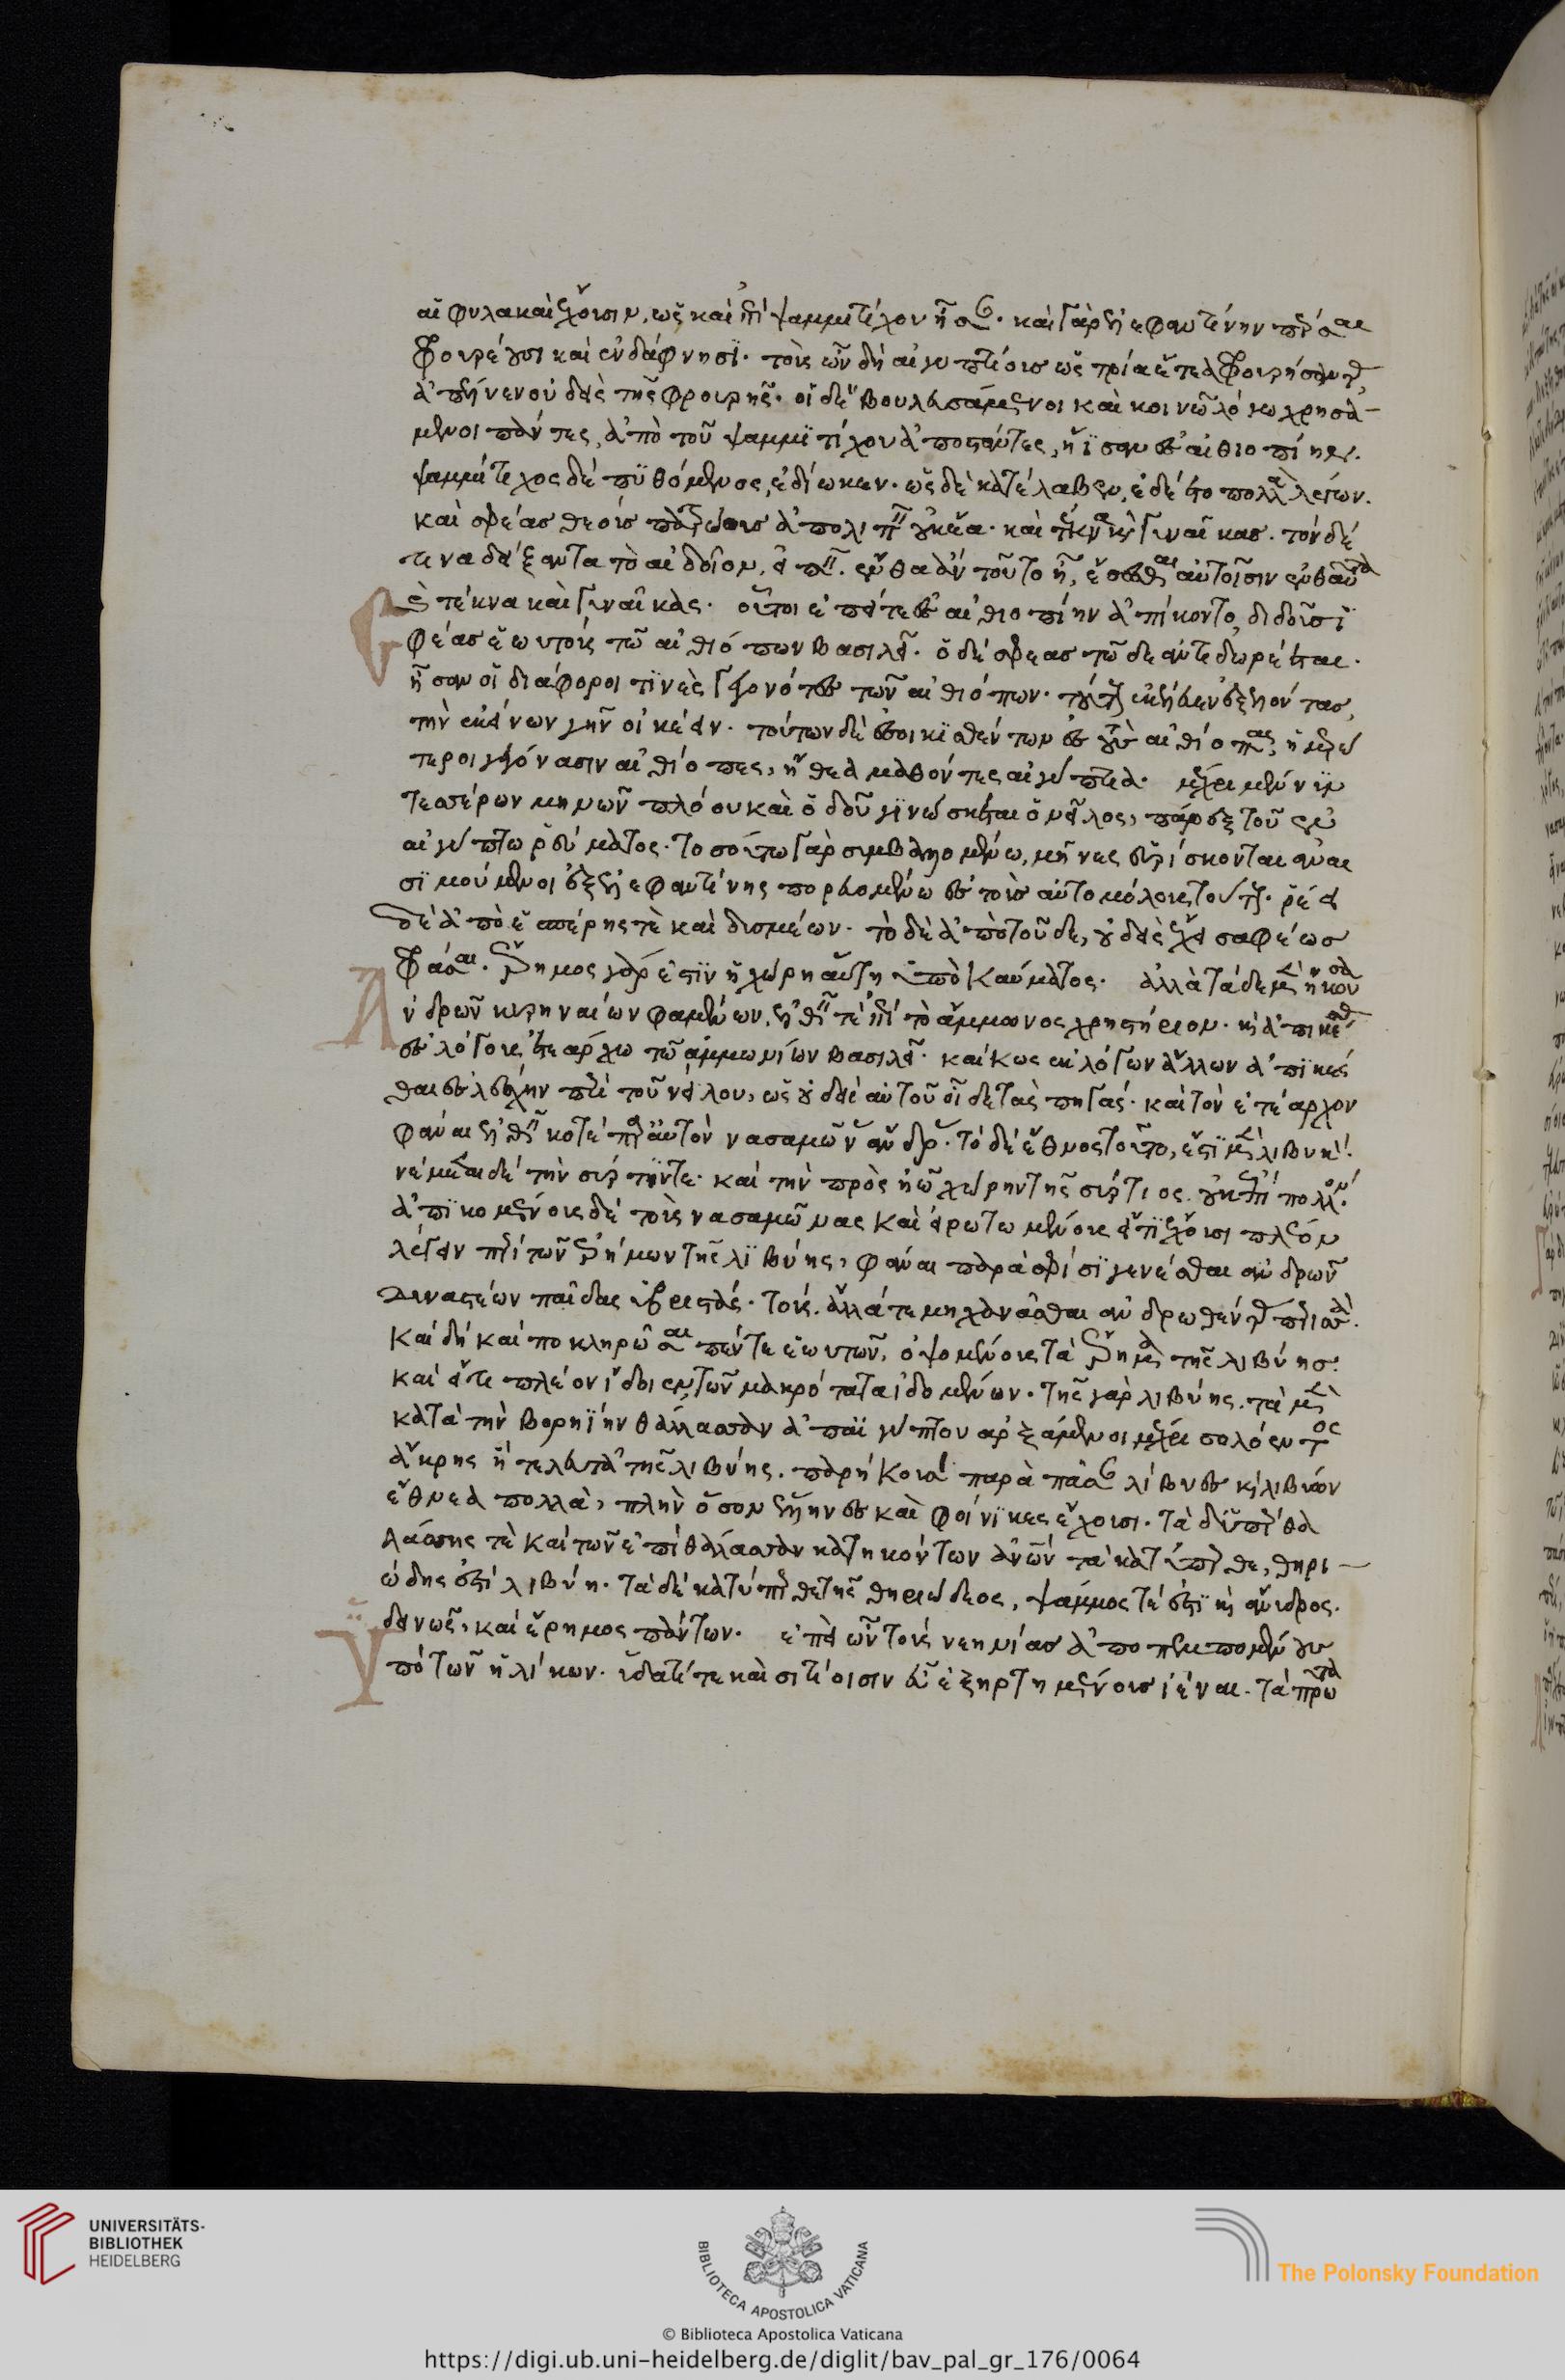 αἱ φυλακαὶ ἔχουσιν, ὡς καὶ ἐπὶ ψαμμιτίχου ἦσαν. καὶ γὰρ ἐν ἐλεφαντίνῃ πέρσαι
φρουρέουσι καὶ ἐν δάφνῃσι. τοὺς ὦν δὴ αἰγυπτίους ὡς τρία ἔτεα φρουρήσαντας
ἀπέλυεν οὐδεὶς τῆς φρουρῆς. οἱ δὲ βουλευσάμενοι καὶ κοινῷ λόγῳ χρησά-
μενοι πάντες, ἀπὸ τοῦ ψαμμιτίχου ἀποστάντες, ἤϊσαν ἐς αἰθιοπίην.
ψαμμίτιχος δὲ πυθόμενος, ἐδίωκεν. ὡς δὲ κατέλαβεν, ἐδέετο πολλὰ λέγων.
καὶ σφέας θεοὺς πατρωίους ἀπολιπεῖν οὐκ ἔα. καὶ τέκνα καὶ γυναῖκας. τὸν δέ
τινα δείξαντα τὸ αἰδοῖον, εἰπεῖν. ἔνθα ἂν τοῦτο ᾖ, ἔσεσθαι αὐτοῖσιν ἐνθαῦτα
καὶ τέκνα καὶ γυναῖκας. οὗτοι ἐπείτε ἐς αἰθιοπίην ἀπίκοντο, διδοῦσι
σφέας ἑωυτοὺς τῷ αἰθιόπων βασιλεῖ. ὁ δέ σφεας τῷδε ἀντιδωρέεται.
ἦσαν οἱ διάφοροι τινὲς γεγονότες τῶν αἰθιόπων. τούτους ἐκέλευε ἐξελόντας,
τὴν ἐκείνων γῆν οἰκέειν. τούτων δὲ ἐσοικισθέντων ἐς τοὺς αἰθίοπας, ἡμερώ
τεροι γεγόνασιν αἰθίοπες, ἤθεα μαθόντες αἰγύπτια. μέχρι μέν νυν
τεσσέρων μηνῶν πλόου καὶ ὁδοῦ γινώσκεται ὁ νεῖλος, πάρεξ τοῦ ἐν
αἰγύπτῳ ῥεύματος. τοσοῦτοι γὰρ συμβαλλομένῳ, μῆνες εὑρίσκονται ἀναι
σιμούμενοι ἐξ ἐλεφαντίνης πορευομένῳ ἐς τοὺς αὐτομόλους τούτους. ῥέει
δὲ ἀπὸ ἑσπέρης τὲ καὶ δυσμέων. τὸ δὲ ἀπὸ τοῦδε, οὐδεὶς ἔχει σαφέως
φράσαι. ἔρημος γάρ ἐστιν ἡ χώρη αὕτη ὑπὸ καύματος. ἀλλὰ τάδε μὲν ἤκουσα
ἀνδρῶν κυρηναίων φαμένων, ἐλθεῖν τὲ ἐπὶ τὸ ἄμμωνος χρηστήριον. καὶ ἀπικέσθαι
ἐς λόγους ἐτεάρχῳ τῷ ἀμμωνίων βασιλεῖ. καί κως ἐκ λόγων ἄλλων ἀπικέσ
θαι ἐς λέσχην περὶ τοῦ νείλου, ὡς οὐδεὶς αὐτοῦ οἶδε τὰς πηγάς. καὶ τὸν ἐτέαρχον
φάναι ἐλθεῖν κοτὲ παρ' αὐτὸν νασαμῶνας ἄνδρας. τὸ δὲ ἔθνος τοῦτο, ἔστι μὲν λιβυκόν.
νέμεται δὲ τὴν σύρτην τε καὶ τὴν πρὸς ἠῶ χώρην τῆς σύρτιος. οὐκ ἐπὶ πολλόν.
ἀπικομένους δὲ τοὺς νασαμῶνας καὶ εἰρωτωμένους εἴ τι ἔχουσι πλέον
λέγειν περὶ τῶν ἐρήμων τῆς λιβύης, φάναι παρὰ σφίσι γενέσθαι ἀνδρῶν
δυναστέων παῖδας ὑβριστάς. τοὺς ἄλλά τε μηχανᾶσθαι ἀνδρωθέντας περισσά.
καὶ δὴ καὶ ἀποκληρῶσαι πέντε ἑωυτῶν, ὀψομένους τὰ ἔρημα τῆς λιβύης.
καὶ εἴ τι πλέον ἴδοιεν τῶν μακρότατα ἰδομένων. τῆς γὰρ λιβύης. τὰ μὲν
κατὰ τὴν βορηίην θάλασσαν ἀπ' αἰγύπτου ἀρξάμενοι μέχρι σολόεντος
ἄκρης ἣ τελευτᾷ τῆς λιβύης. παρήκουσι παρὰ πᾶσαν λίβυες καὶ λιβύων
ἔθνεα πολλὰ, πλὴν ὅσον ἕλληνες καὶ φοίνικες ἔχουσι. τὰ δὲ ὑπὲρ θα
λάσσης τὲ καὶ τῶν ἐπὶ θάλασσαν κατηκόντων ἀνθρώπων τὰ κατύπερθε, θηρι-
ώδης ἐστὶ λιβύη. τὰ δὲ κατύπερθε τῆς θηριώδεος, ψάμμος τέ ἐστι καὶ ἄνυδρος.
δεινῶς, καὶ ἔρημος πάντων. ἐπεὶ ὦν τοὺς νεηνίας ἀποπεμπομένους
ὑπὸ τῶν ἡλίκων. ὕδασί τε καὶ σιτίοισιν εὖ ἐξηρτημένους ἰέναι. τὰ πρῶτα
UNIVERSITÄTS-
BIBLIOTHEK
HEIDELBERG
BIBLIOTECA APOSTOLICA VATICANA
The Polonsky Foundation
© Biblioteca Apostolica Vaticana
https://digi.ub.uni-heidelberg.de/diglit/bav_pal_gr_176/0064